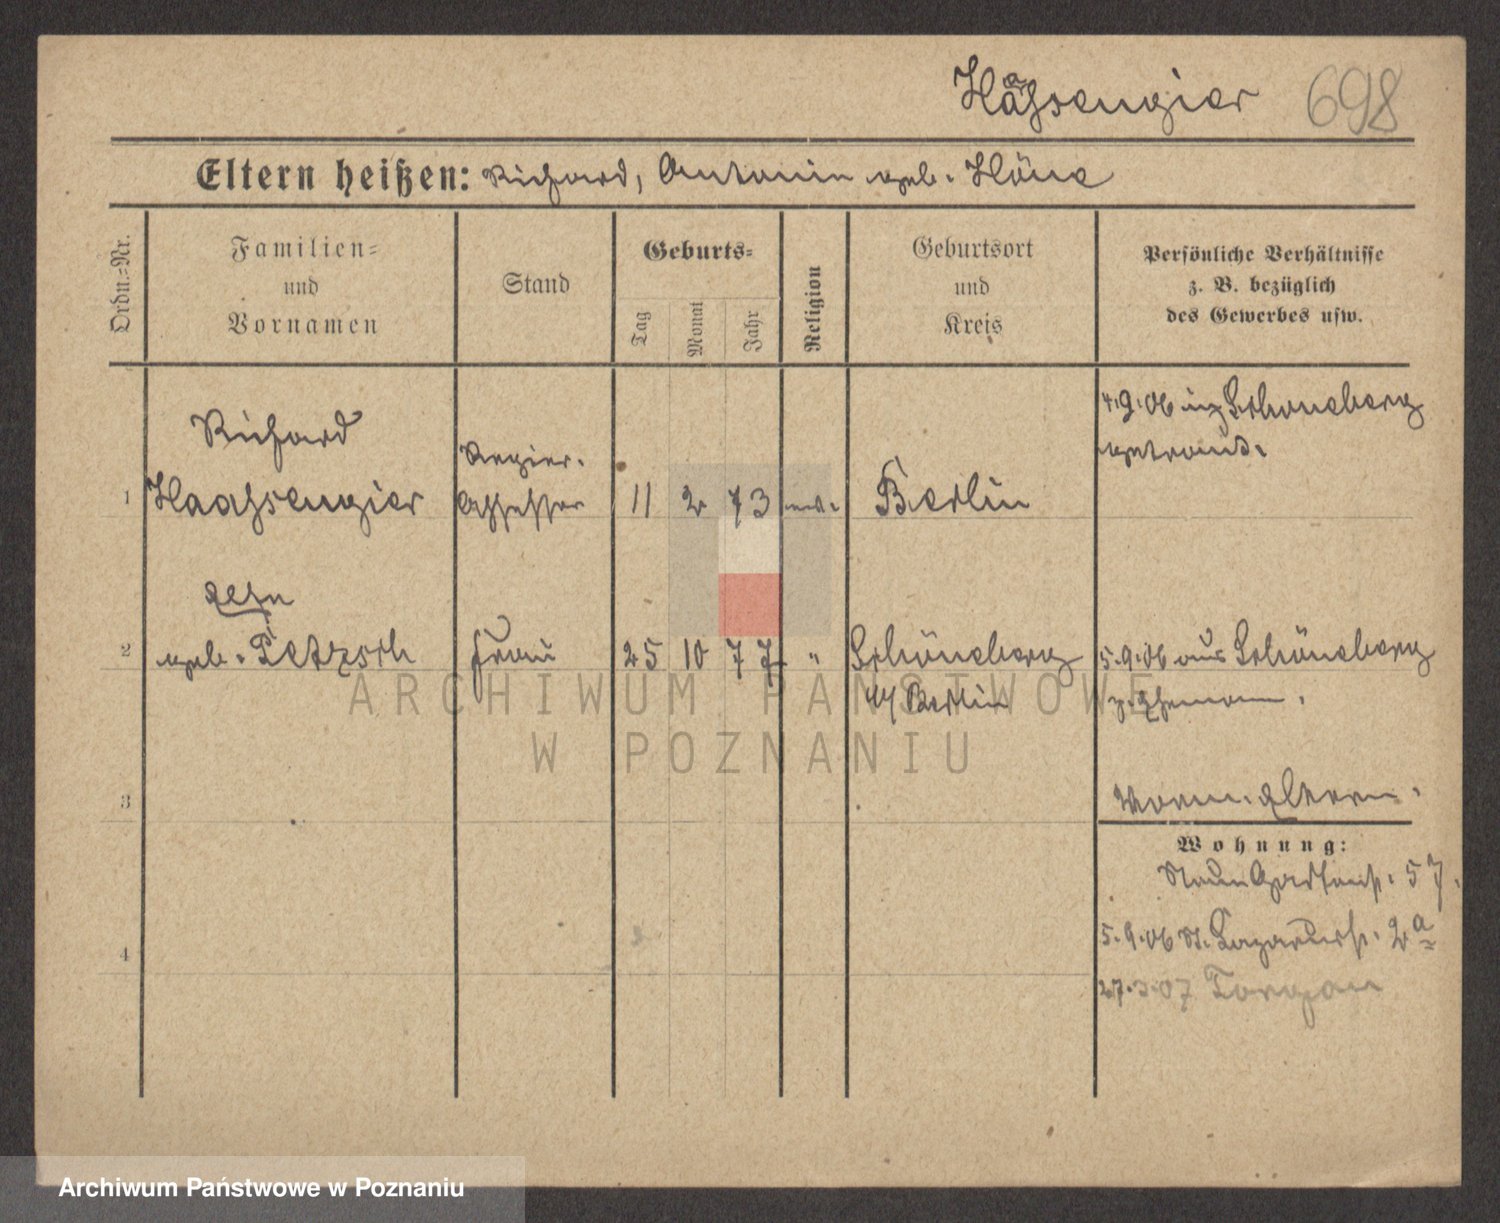 Haassengier 698
Eltern heißen: Richard, Antonin geb. Höne
Ordn.=Nr.
Familien=
und
Vornamen
Stand
Geburts=
Tag
Monat
Jahr
Religion
Geburtsort
und
Kreis
Persönliche Verhältnisse
z. B. bezüglich
des Gewerbes usw.
4.9.06 in Schöneberg
getraut.
Richard
1 Haassengier
Regier.
Assessor
11 2 73 ev. Berlin
geb. Petzsch
2 Frau 25 10 77 " Schöneberg
b/ Berlin
5.9.06 aus Schöneberg
z. Ehemann.
3
Eltern.
Wohnung:
Neue Gartenstr. 57.
4
5.9.06 St. Lazarusstr. 2a
27.3.07 Torgau
ARCHIWUM PAŃSTWOWE
W POZNANIU
Archiwum Państwowe w Poznaniu